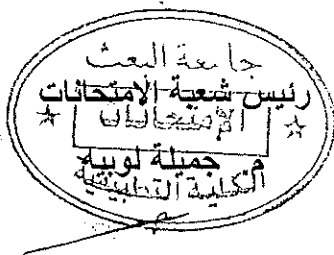 جامعة البعث
رئيس شعبة الامتحانات
الامتحانات
م جميلة لوبيه
الكلية التطبيقية